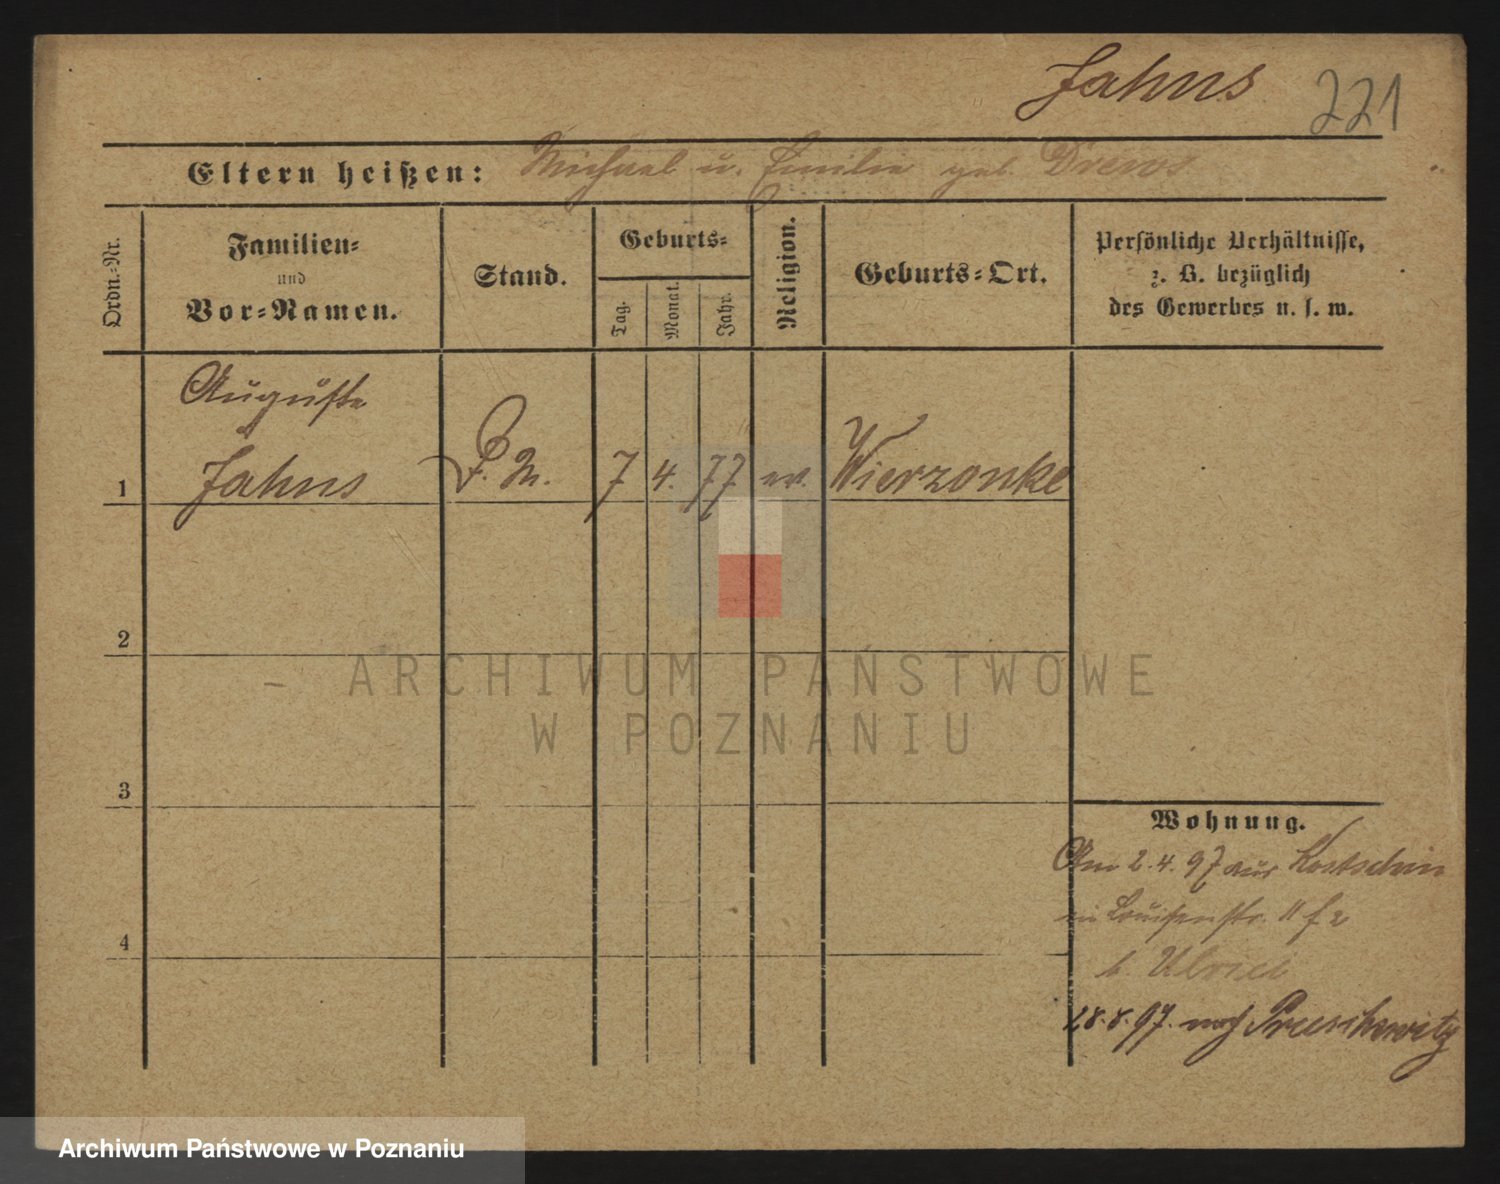 Jahns 221
Eltern heißen: Michael u. Emilie geb. Drews
Ordn.=Nr.
Familien=
und
Vor=Namen.
Stand.
Geburts=
Tag.
Monat.
Jahr.
Religion.
Geburts=Ort.
Persönliche Verhältnisse,
z. B. bezüglich
des Gewerbes u. s. w.
Auguste
1 Jahns D. M. 7 4. 77 ev. Wierzonke
2
3
4
ARCHIWUM PAŃSTWOWE
W POZNANIU
Wohnung.
Am 2.4.97 aus Kostschin
in Louisenstr. 11
b.
28.8.97. nach
Archiwum Państwowe w Poznaniu